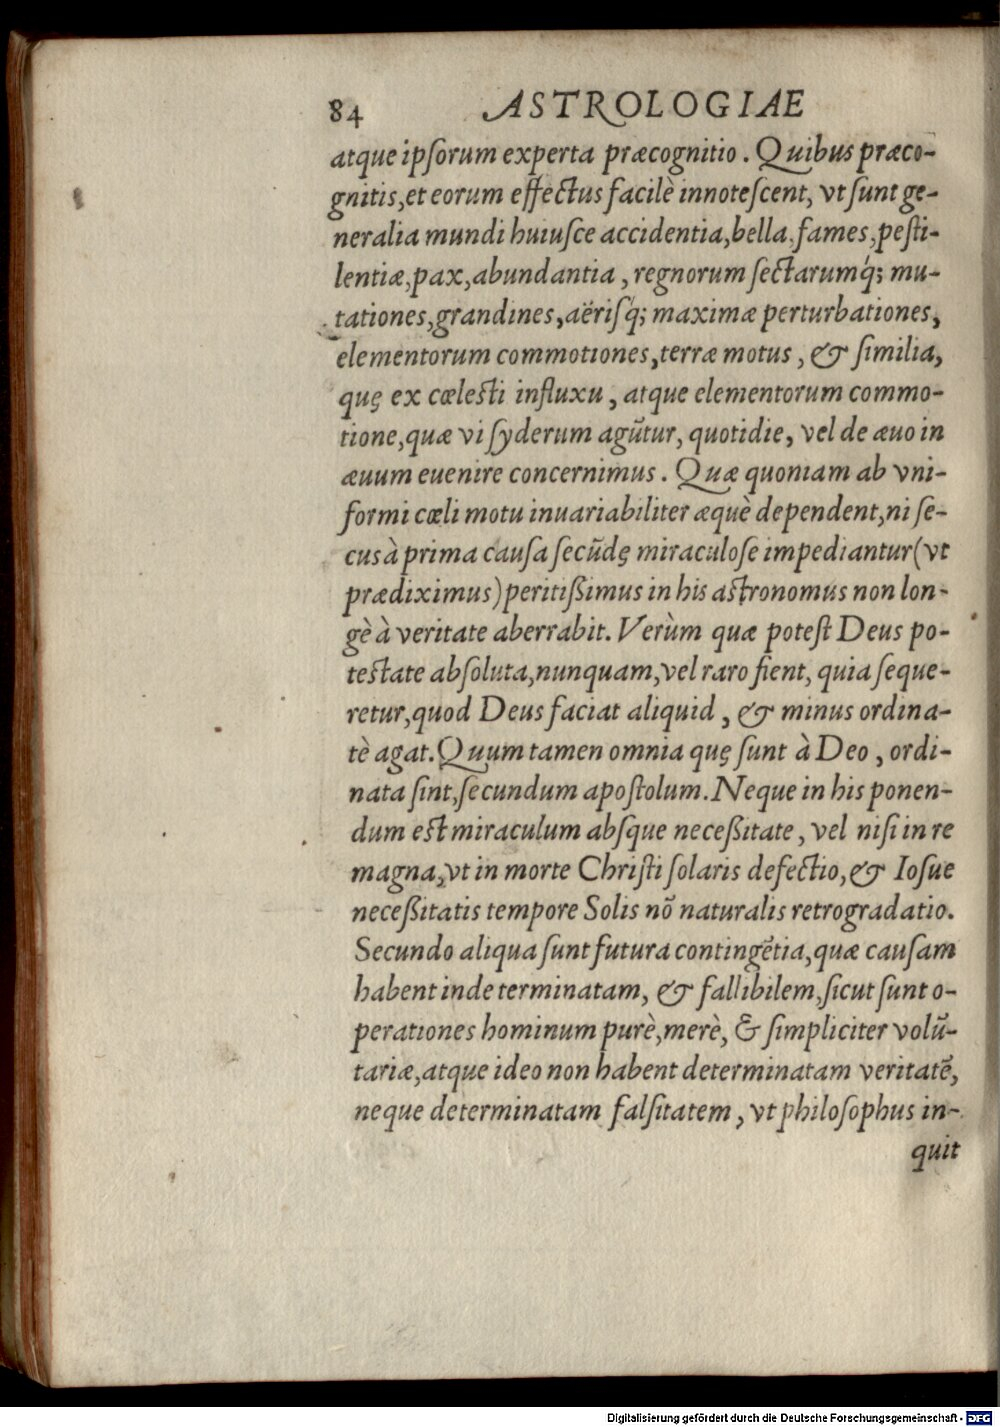 84 ASTROLOGIAE
atque ipſorum experta præcognitio. Quibus præco-
gnitis, et eorum effectus facilè innoteſcent, vt ſunt ge-
neralia mundi huiuſce accidentia, bella, fames, peſti-
lentiæ, pax, abundantia, regnorum ſectarumq́; mu-
tationes, grandines, aëriſq́; maximæ perturbationes,
elementorum commotiones, terræ motus, & ſimilia,
quę ex cœleſti influxu, atque elementorum commo-
tione, quæ vi ſyderum agūtur, quotidie, vel de æuo in
æuum euenire concernimus. Quæ quoniam ab vni-
formi cœli motu inuariabiliter æquè dependent, ni ſe-
cus à prima cauſa ſecūdę miraculoſe impediantur (vt
prædiximus) peritißimus in his aſtronomus non lon-
gè à veritate aberrabit. Verùm quæ poteſt Deus po-
teſtate abſoluta, nunquam, vel raro fient, quia ſeque-
retur, quod Deus faciat aliquid, & minus ordina-
tè agat. Quum tamen omnia quę ſunt à Deo, ordi-
nata ſint, ſecundum apoſtolum. Neque in his ponen-
dum eſt miraculum abſque neceßitate, vel niſi in re
magna, vt in morte Chriſti ſolaris defectio, & Ioſue
neceßitatis tempore Solis nō naturalis retrogradatio.
Secundo aliqua ſunt futura contingētia, quæ cauſam
habent indeterminatam, & fallibilem, ſicut ſunt o-
perationes hominum purè, merè, & ſimpliciter volū-
tariæ, atque ideo non habent determinatam veritatē,
neque determinatam falſitatem, vt philoſophus in-
quit
Digitalisierung gefördert durch die Deutsche Forschungsgemeinschaft - DFG